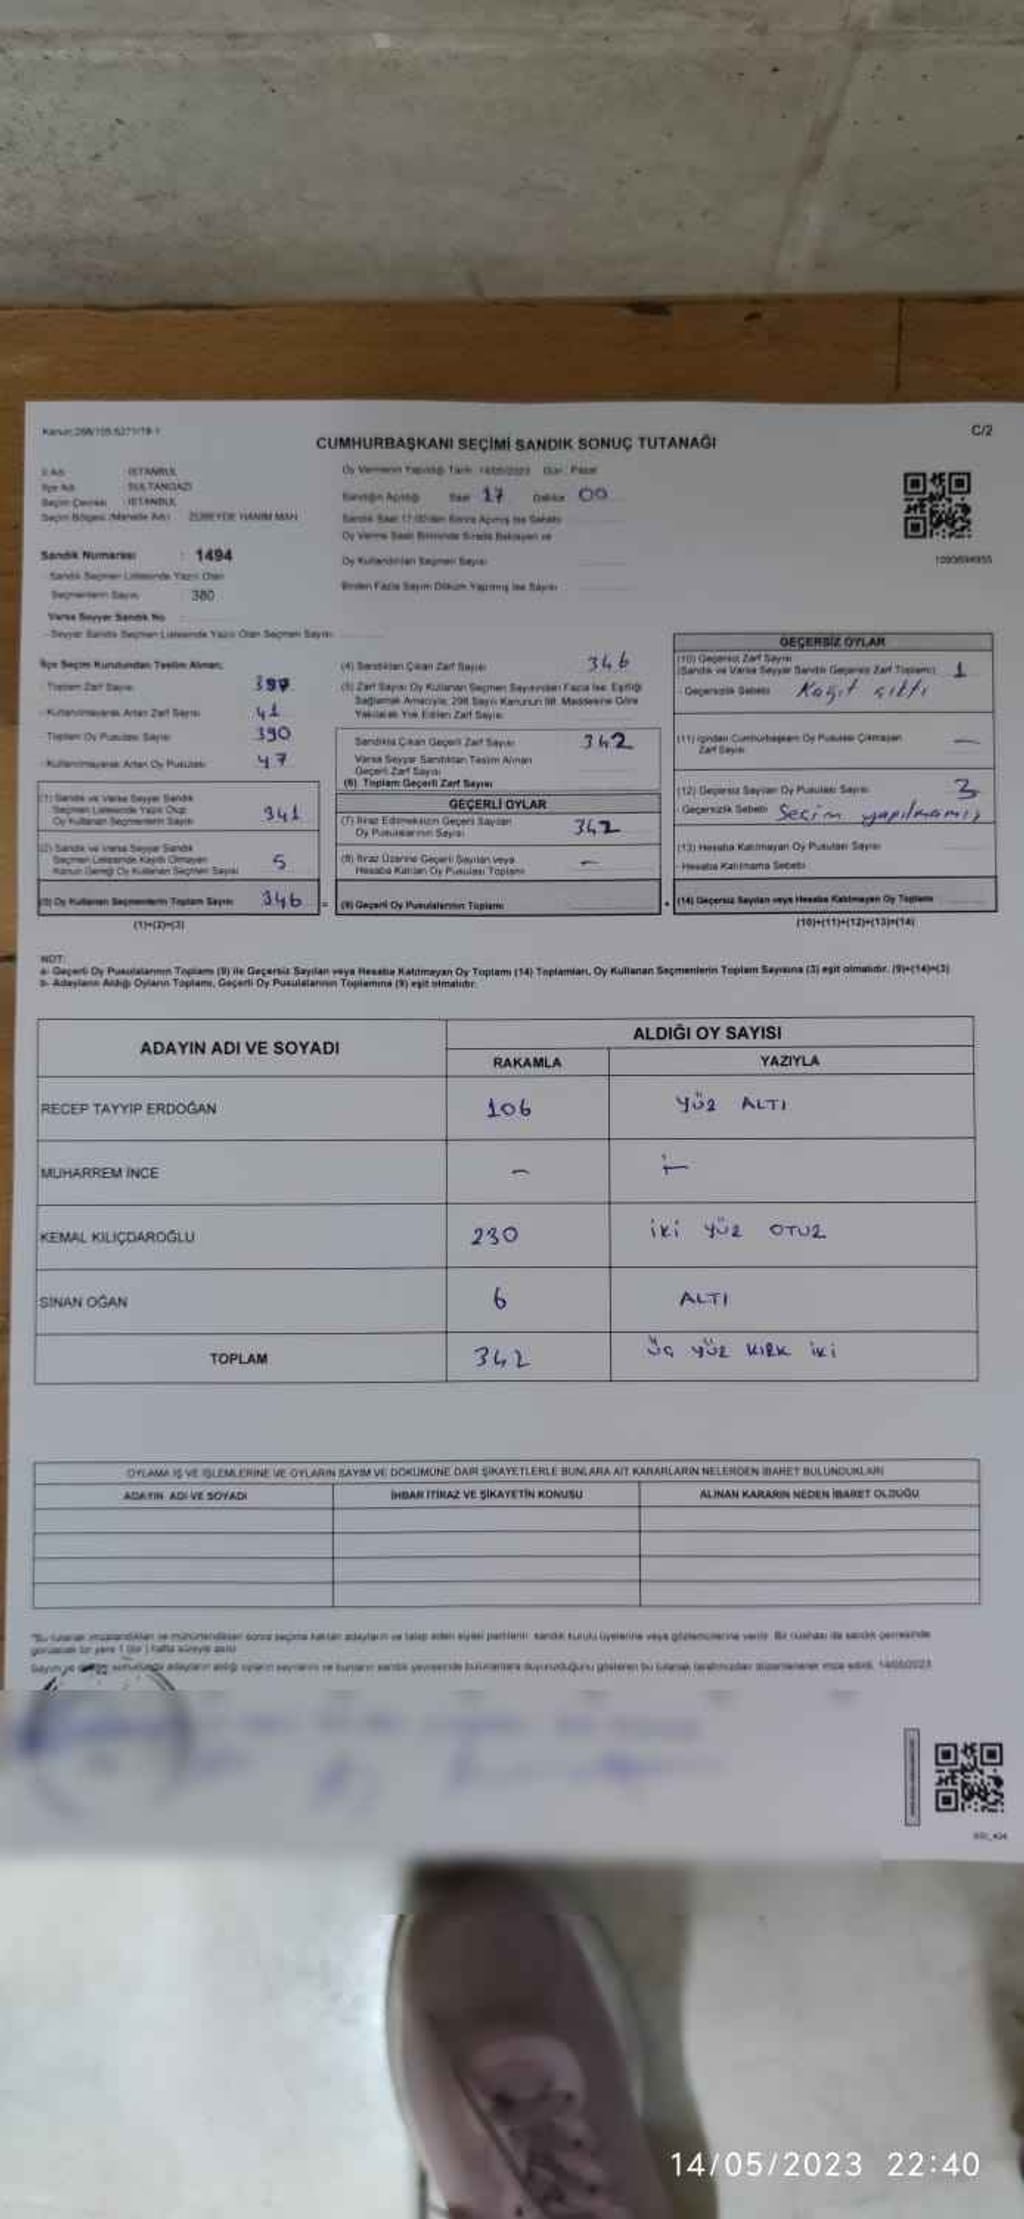 Kanun:298/105.6271/19-1
C/2
CUMHURBAŞKANI SEÇİMİ SANDIK SONUÇ TUTANAĞI
İl Adı : İSTANBUL
İlçe Adı : SULTANGAZİ
Seçim Çevresi : İSTANBUL
Seçim Bölgesi (Mahalle Adı) : ZÜBEYDE HANIM MAH.
Oy Vermenin Yapıldığı Tarih: 14/05/2023 Gün: Pazar
Sandığın Açıldığı Saat 17 Dakika 00
Sandık Saat 17:00'den Sonra Açılmış İse Sebebi
Oy Verme Saati Bitiminde Sırada Bekleyen ve
Oy Kullandırılan Seçmen Sayısı
Birden Fazla Sayım Döküm Yapılmış İse Sayısı
Sandık Numarası : 1494
- Sandık Seçmen Listesinde Yazılı Olan
Seçmenlerin Sayısı 380
Varsa Seyyar Sandık No
- Seyyar Sandık Seçmen Listesinde Yazılı Olan Seçmen Sayısı
İlçe Seçim Kurulundan Teslim Alınan;
- Toplam Zarf Sayısı
- Kullanılmayarak Artan Zarf Sayısı 41
- Toplam Oy Pusulası Sayısı 390
- Kullanılmayarak Artan Oy Pusulası 47
(1) Sandık ve Varsa Seyyar Sandık
Seçmen Listesinde Yazılı Olup
Oy Kullanan Seçmenlerin Sayısı 341
(2) Sandık ve Varsa Seyyar Sandık
Seçmen Listesinde Kayıtlı Olmayan
Kanun Gereği Oy Kullanan Seçmen Sayısı 5
(3) Oy Kullanan Seçmenlerin Toplam Sayısı 346
(1)+(2)=(3)
(4) Sandıktan Çıkan Zarf Sayısı 346
(5) Zarf Sayısı Oy Kullanan Seçmen Sayısından Fazla İse, Eşitliği
Sağlamak Amacıyla, 298 Sayılı Kanunun 98. Maddesine Göre
Yakılarak Yok Edilen Zarf Sayısı
Sandıkta Çıkan Geçerli Zarf Sayısı 342
Varsa Seyyar Sandıktan Teslim Alınan
Geçerli Zarf Sayısı
(6) Toplam Geçerli Zarf Sayısı
GEÇERLİ OYLAR
(7) İtiraz Edilmeksizin Geçerli Sayılan
Oy Pusulalarının Sayısı 342
(8) İtiraz Üzerine Geçerli Sayılan veya
Hesaba Katılan Oy Pusulası Toplamı —
(9) Geçerli Oy Pusulalarının Toplamı
GEÇERSİZ OYLAR
(10) Geçersiz Zarf Sayısı
(Sandık ve Varsa Seyyar Sandık Geçersiz Zarf Toplamı) 1
- Geçersizlik Sebebi Kağıt çıktı
(11) İçinden Cumhurbaşkanı Oy Pusulası Çıkmayan
Zarf Sayısı —
(12) Geçersiz Sayılan Oy Pusulası Sayısı 3
- Geçersizlik Sebebi Seçim yapılmamış
(13) Hesaba Katılmayan Oy Pusulası Sayısı
- Hesaba Katılmama Sebebi
(14) Geçersiz Sayılan veya Hesaba Katılmayan Oy Toplamı
(10)+(11)+(12)+(13)=(14)
NOT:
a- Geçerli Oy Pusulalarının Toplamı (9) ile Geçersiz Sayılan veya Hesaba Katılmayan Oy Toplamı (14) Toplamları, Oy Kullanan Seçmenlerin Toplam Sayısına (3) eşit olmalıdır. (9)+(14)=(3)
b- Adayların Aldığı Oyların Toplamı, Geçerli Oy Pusulalarının Toplamına (9) eşit olmalıdır.
ADAYIN ADI VE SOYADI
ALDIĞI OY SAYISI
RAKAMLA YAZIYLA
RECEP TAYYIP ERDOĞAN 106 YÜZ ALTI
MUHARREM İNCE — —
KEMAL KILIÇDAROĞLU 230 İKİ YÜZ OTUZ
SİNAN OĞAN 6 ALTI
TOPLAM 342 ÜÇ YÜZ KIRK İKİ
OYLAMA İŞ VE İŞLEMLERİNE VE OYLARIN SAYIM VE DÖKÜMÜNE DAİR ŞİKAYETLERLE BUNLARA AİT KARARLARIN NELERDEN İBARET BULUNDUKLARI
ADAYIN ADI VE SOYADI İHBAR İTİRAZ VE ŞİKAYETİN KONUSU ALINAN KARARIN NEDEN İBARET OLDUĞU
14/05/2023 22:40